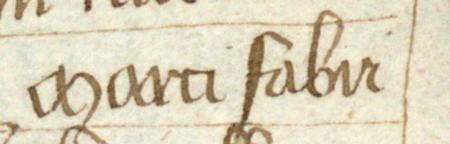 Marti fabri